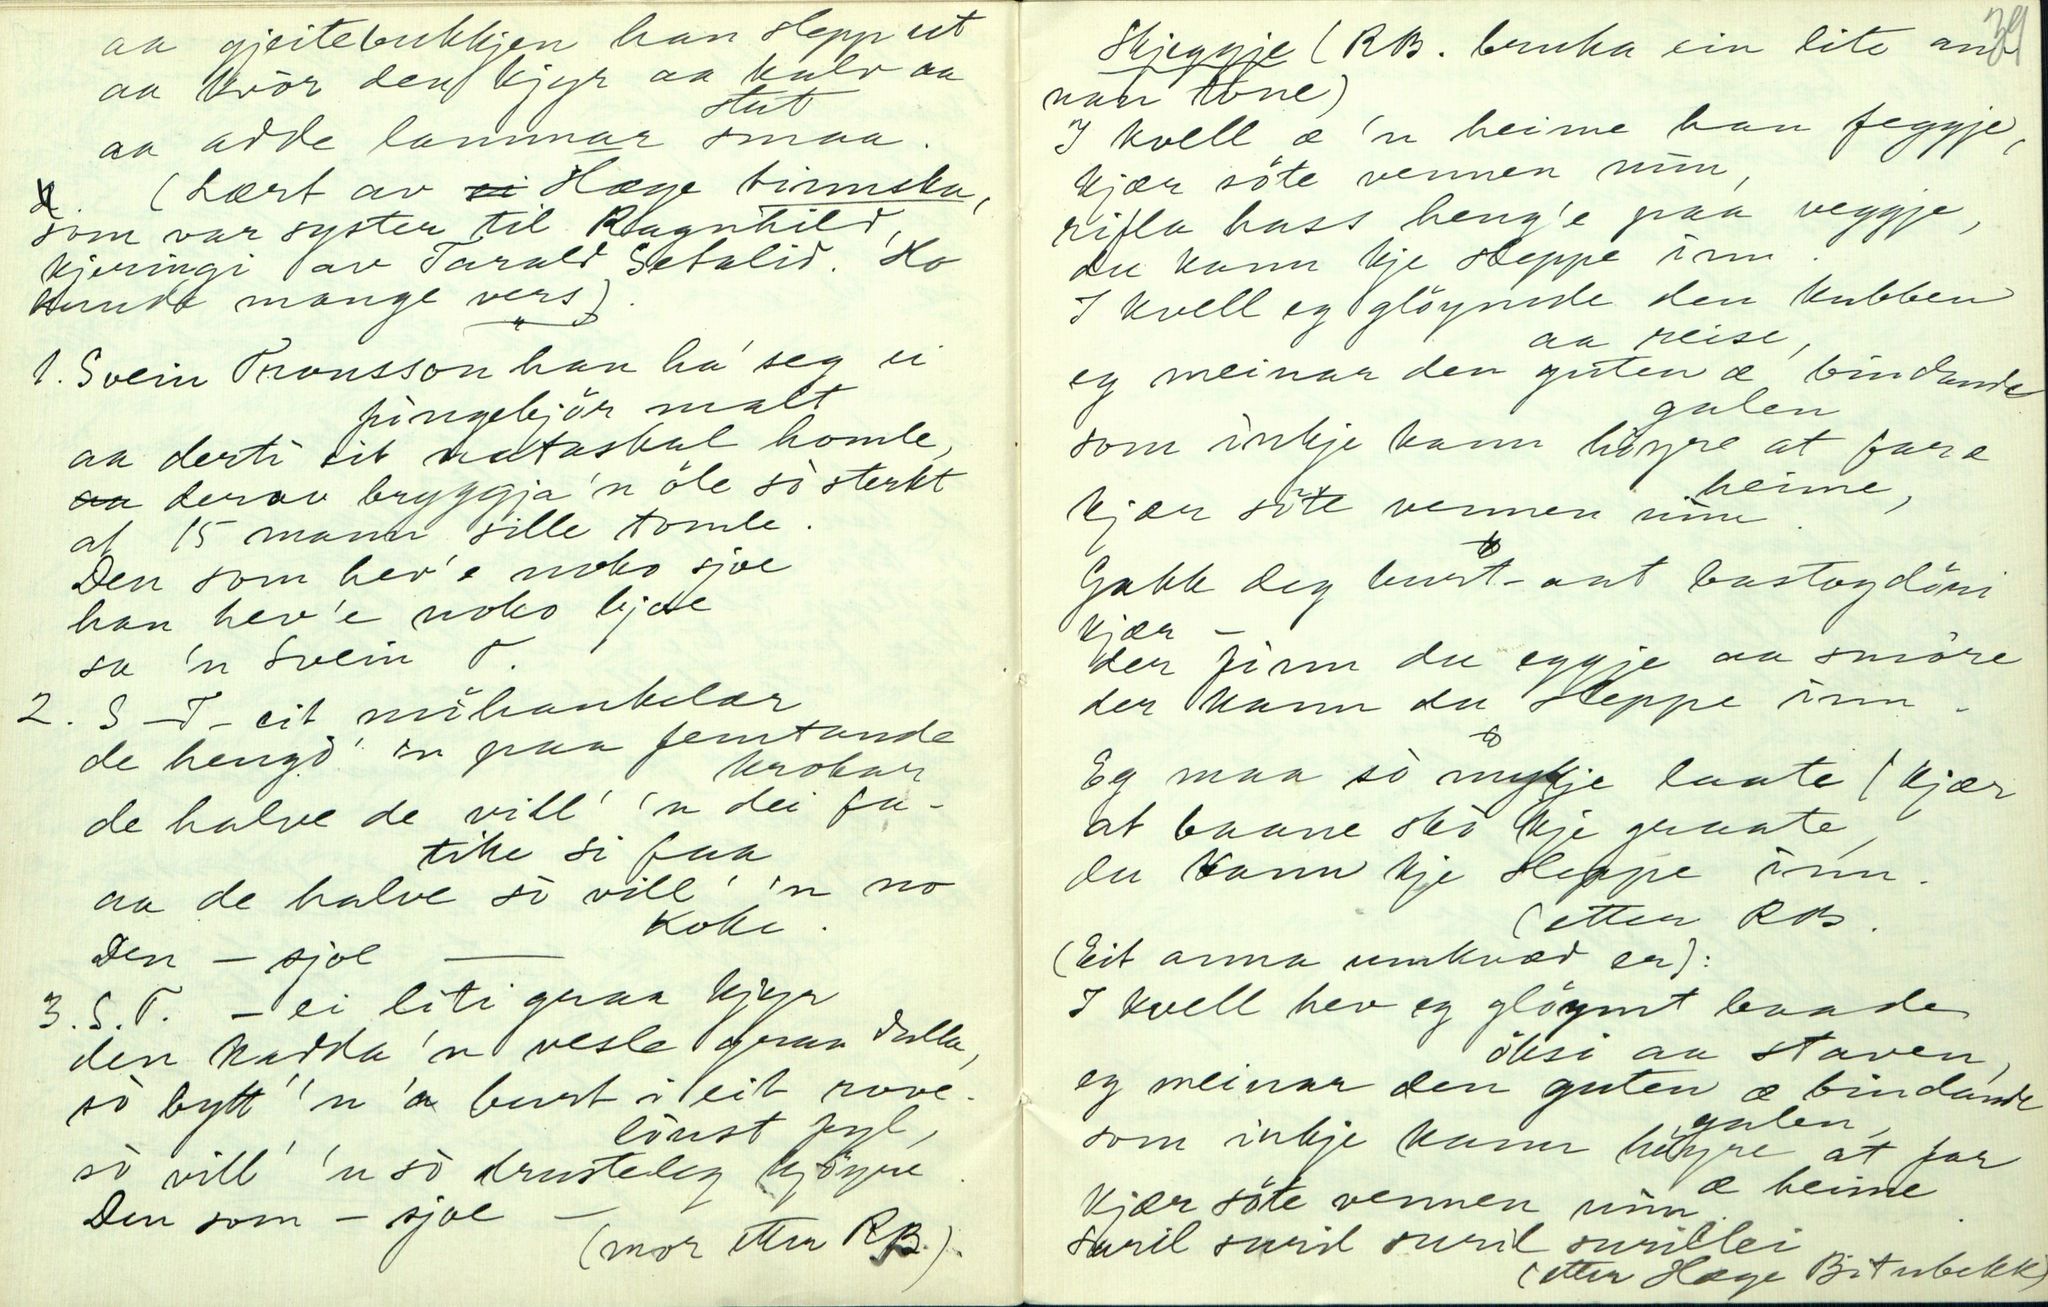 aa gjeitebukkjen han slepp ut
aa kvòr den kjyr aa kalv aa
stut
aa adde lammar smaa.
(Lært av Hæge Tinnska,
som var syster til Ragnhild,
kjeringi av Tarald Sebalid. Ho
kunde mange vers).
1. Svein Tronsson han ha' seg ei
fingebjör malt
aa derti eit nataskal homle,
derav bryggja 'n öle sò sterkt
at 15 mann sille tomle.
Den som hev'e noko sjoe
han hev'e noko kjoe
sa 'n Svein T.
2. S – T – eit nühankelær
de hengd' 'n paa femtande
krokar
de halve de vill' 'n dei fa-
tike si faa
aa de halve sò vill' 'n no
koke.
Den – sjoe —
3. S. T. – ei liti graa kjyr
den kadda 'n vesle graa dalla,
sò bytt' 'n 'a burt i eit rove-
laust fyl,
sò vill' 'n sò drusteleg kjöyre.
Den som – sjoe –
(mor etter RB.).
39
Skjeggje (RB. bruka ein lite an-
nan tone)
I kvell æ 'n heime han feggje,
kjær söte vennen min,
rifla hass heng'e paa veggje,
du kann kje sleppe inn.
I kvell eg glöymde den kubben
aa reise,
eg meinar den guten æ bindande
galen
som inkje kann höyre at far æ
heime,
kjær söte vennen min.
Gakk deg burt-ant bastogdöni
kjær –
der finn du eggje aa smöre
der kann du sleppe inn.
Eg maa sò mykje laate / kjær
at baane sko kje graate,
du kann kje sleppe inn.
(etter RB.
(Eit anna umkvæd er):
I kvell hev eg glöymt baade
öksi aa staven,
eg meinar den guten æ bindande
galen,
som inkje kann höyre at far
æ heime.
kjær söte vennen min.
Suril suril suril surillei
(etter Hæge Bitnbekk)